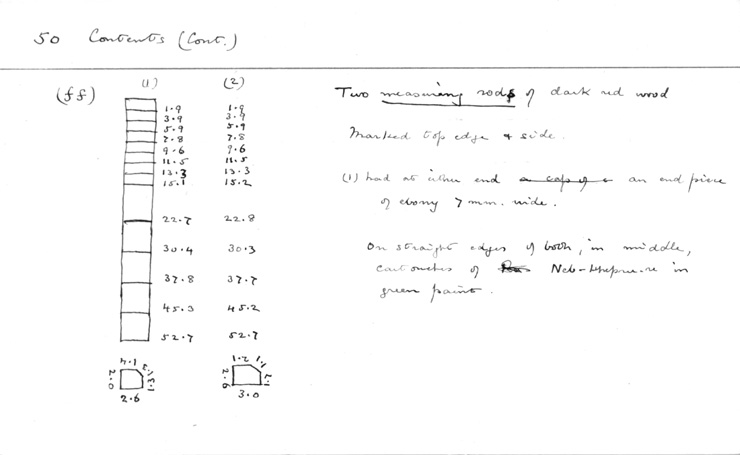 50 Contents (Cont.)
(ff)
(1) (2)
1.9 1.9
3.9 3.9
5.9 5.9
7.8 7.8
9.6 9.6
11.5 11.5
13.3 13.3
15.1 15.2
22.7 22.8
30.4 30.3
37.8 37.7
45.3 45.2
52.7 52.7
2.0
2.6
1.2 1.1
2.6 1.1
3.0
Two measuring rods of dark red wood
Marked top edge + side.
(1) had at either end a cap of an end piece
of ebony 7 mm. wide.
On straight edges of both, in middle,
cartouches of Neb-kheperu-re in
green paint.